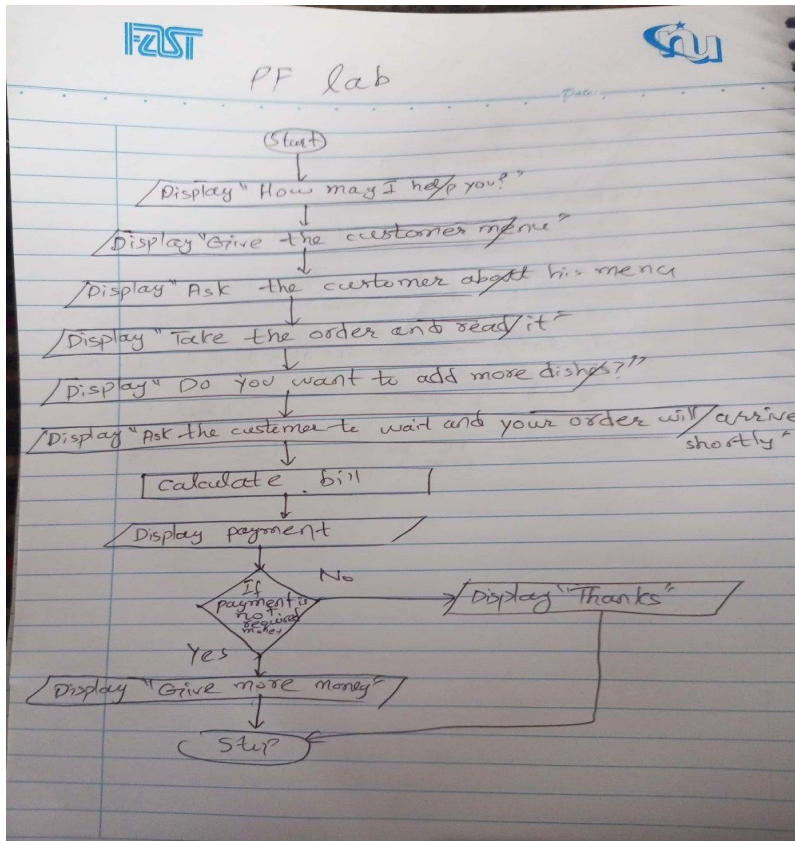 FAST
nu
PF lab
Date:
Start
Display "How may I help you?"
Display "Give the customer menu"
Display "Ask the customer about his menu
Display "Take the order and read it"
Display "Do you want to add more dishes?"
Display "Ask the customer to wait and your order will arrive
shortly"
calculate bill
Display payment
If
payment is
not
required
money
No
Display "Thanks"
Yes
Display "Give more money"
Stop